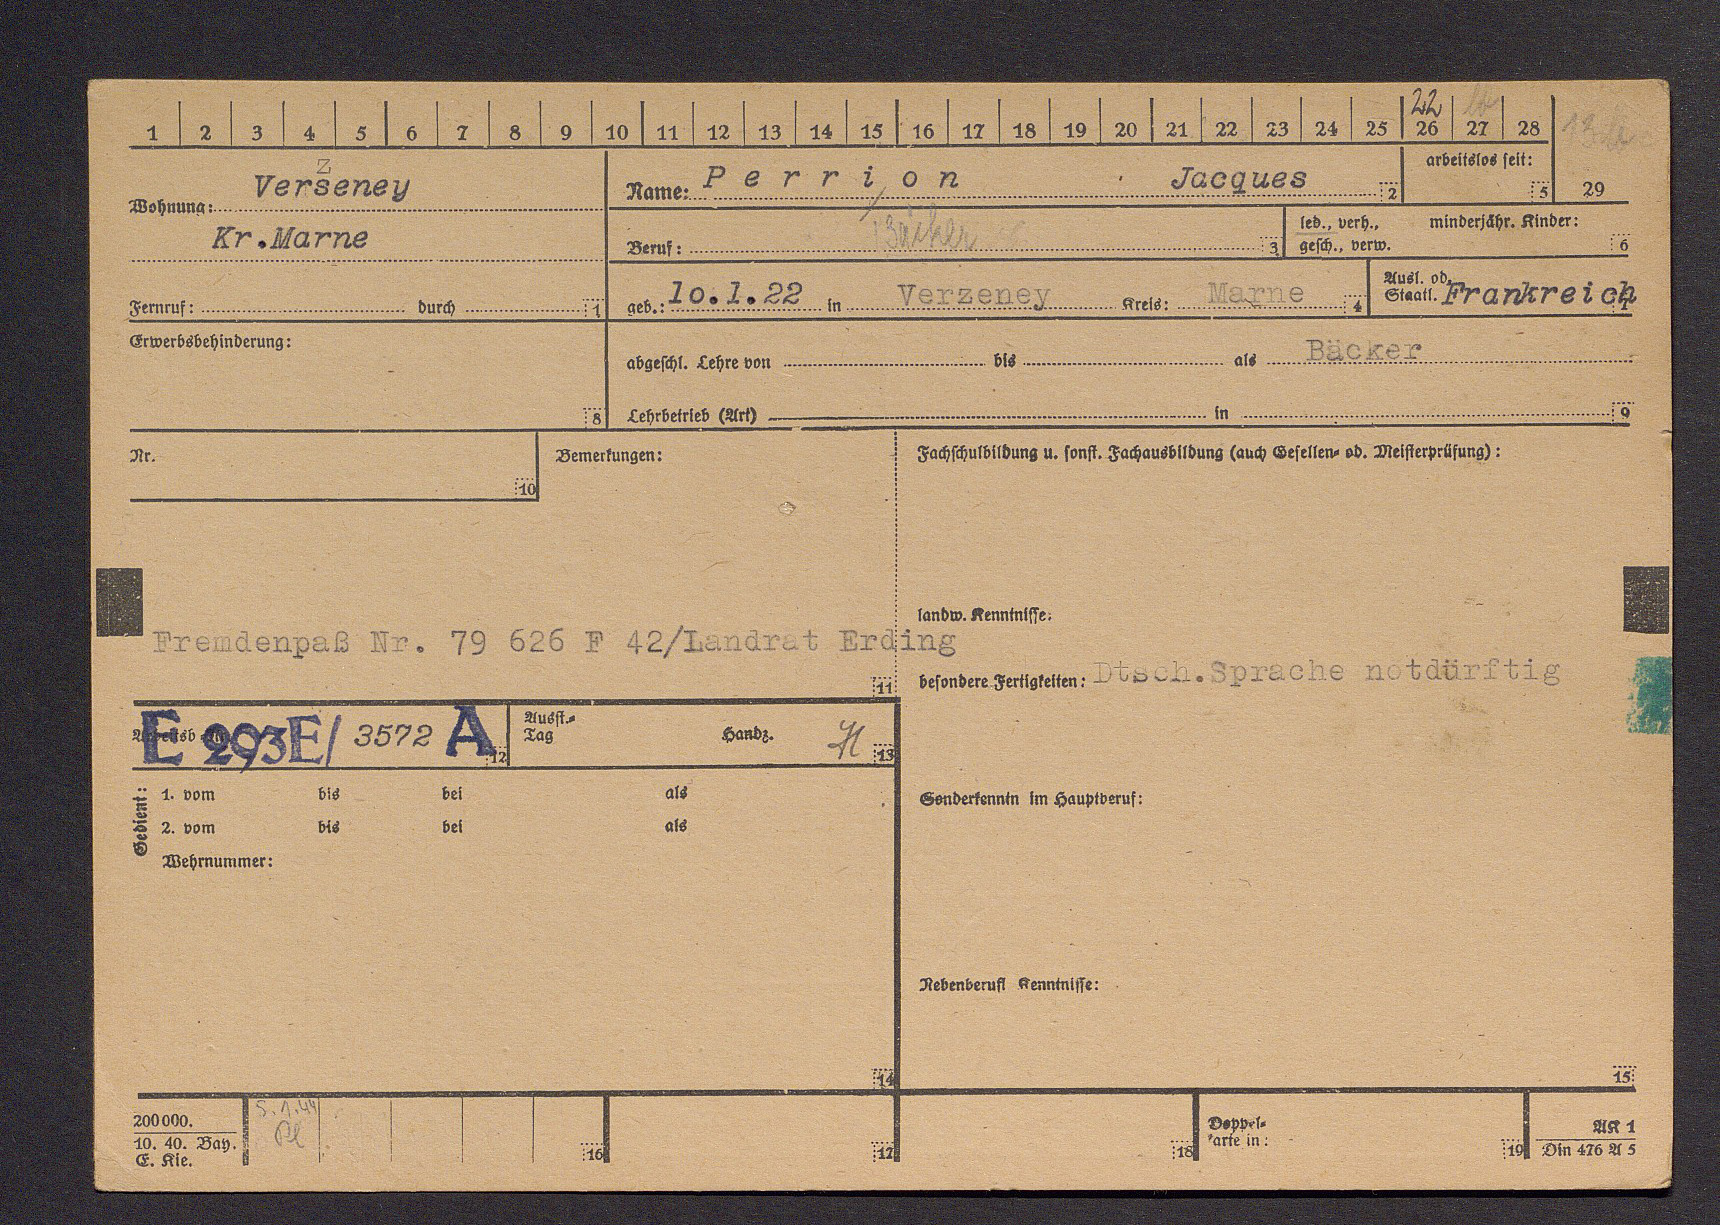 1 2 3 4 5 6 7 8 9 10 11 12 13 14 15 16 17 18 19 20 21 22 23 24 25 26 27 28
22
Z
Wohnung: Verseney
Kr.Marne
Fernruf: durch 1
Name: Perrion Jacques 2
arbeitslos seit: 5
29
Beruf: Bäcker 3
led., verh., gesch., verw.
minderjähr. Kinder: 6
geb.: 10.1.22 in Verzeney Kreis: Marne 4
Ausl. od. Staatl. Frankreich
Erwerbsbehinderung: 8
abgeschl. Lehre von bis als Bäcker
Lehrbetrieb (Art) in 9
Nr. 10
Bemerkungen:
Fachschulbildung u. sonst. Fachausbildung (auch Gesellen- od. Meisterprüfung):
landw. Kenntnisse:
Fremdenpaß Nr. 79 626 F 42/Landrat Erding
11
besondere Fertigkeiten: Dtsch.Sprache notdürftig
E 293E/ 3572 A 12
Ausst.-
Tag Handz. 13
Gedient:
1. vom bis bei als
2. vom bis bei als
Wehrnummer:
Sonderkenntn im Hauptberuf:
Nebenberufl Kenntnisse:
14
15
200000.
10. 40. Bay.
E. Kie.
5.1.44
16
17
18
Doppel-
karte in: 19
AK 1
Din 476 A 5